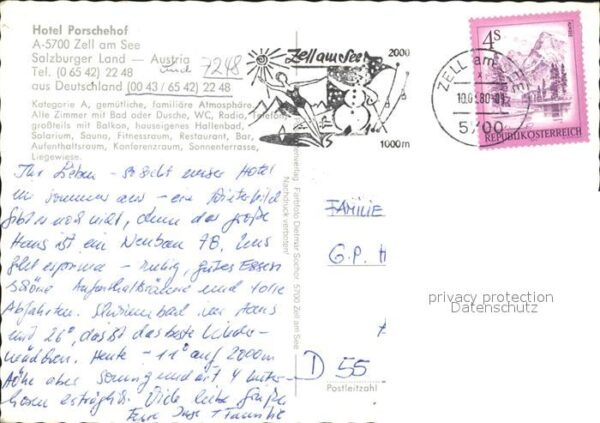 Hotel Porschehof
A-5700 Zell am See
Salzburger Land — Austria
Tel. (0 65 42) 22 48 und 7248
aus Deutschland (00 43 / 65 42) 22 48
Kategorie A, gemütliche, familiäre Atmosphäre.
Alte Zimmer mit Bad oder Dusche, WC, Radio, Telefon,
großteils mit Balkon, hauseigenes Hallenbad,
Solarium, Sauna, Fitnessraum, Restaurant, Bar,
Aufenthaltsraum, Konferenzraum, Sonnenterrasse,
Liegewiese.
Ihr Lieben - so sieht unser Hotel
im Sommer aus - ein Winterbild
gibt es noch nicht, denn das große
Haus ist ein Neubau 78. Uns
geht es prima - ruhig, gutes Essen
schöne Aufenthaltsräume und tolle
Abfahrten. Schwimmbad im Haus
mit 26°, das ist das beste
Heute - 11° auf 2000m
Höhe aber sonnig und mit 4 Unter-
hosen erträglich. Viele liebe Grüße
Eure + Familie
Farbfoto Dietmar Sochor, 5700 Zell am See
Nachdruck verboten!
Zell am See
2000
1000m
ZELL am SEE
10.03.80-09
5700
4S
REPUBLIK ÖSTERREICH
FAMILIE
G.P. H
privacy protection
Datenschutz
D 55
Postleitzahl